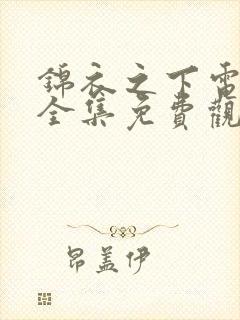 錦衣之下電
全集免費觀
昂盖伊